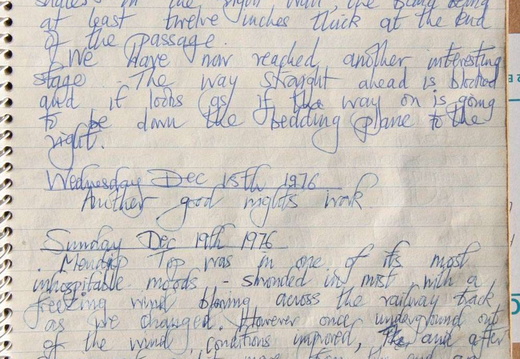 in the right wall, the
at least twelve inches thick at the end
of the passage.
We have now reached another interesting
stage. The way straight ahead is blocked
and it looks as if the way on is going
to be down the bedding plane to the
right.
Wednesday Dec 15th 1976
Another good nights work
Sunday Dec 19th 1976
Mendip Top was in one of its most
inhospitable moods - shrouded in mist with a
freezing wind blowing across the railway track
as we changed. However once underground out
of the wind, conditions improved, and after